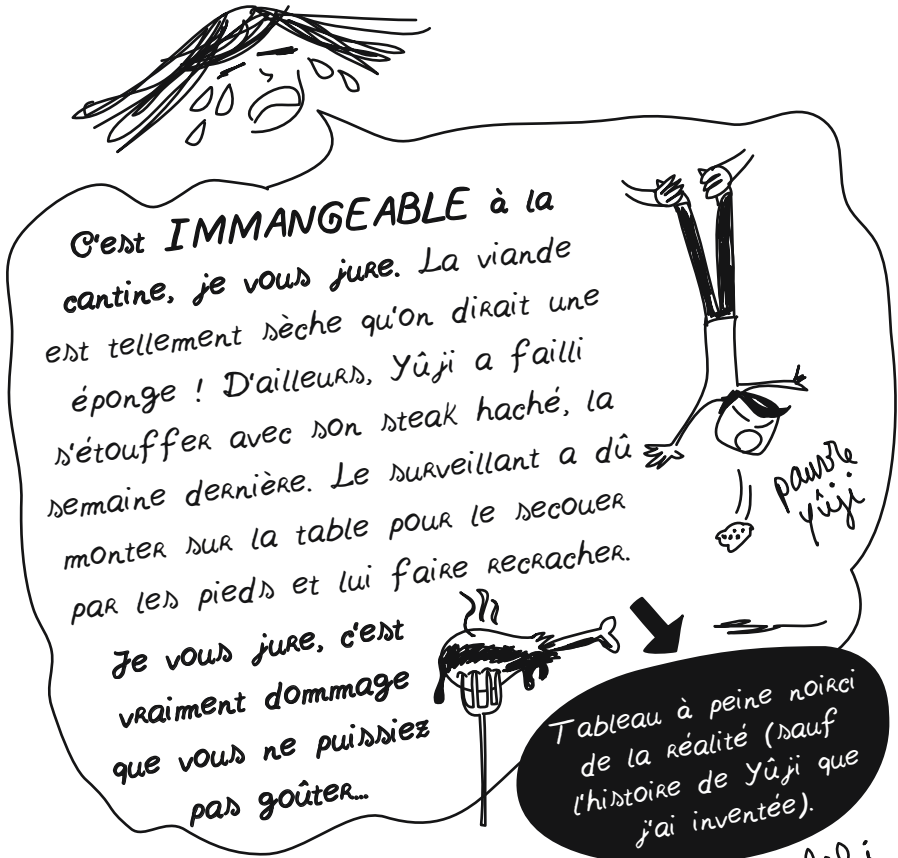 C'est IMMANGEABLE à la
cantine, je vous jure. La viande
est tellement sèche qu'on dirait une
éponge ! D'ailleurs, Yûji a failli
s'étouffer avec son steak haché, la
semaine dernière. Le surveillant a dû
monter sur la table pour le secouer
par les pieds et lui faire recracher.
Je vous jure, c'est
vraiment dommage
que vous ne puissiez
pas goûter...
pauvre
yûji
Tableau à peine noirci
de la réalité (sauf
l'histoire de Yûji que
j'ai inventée).